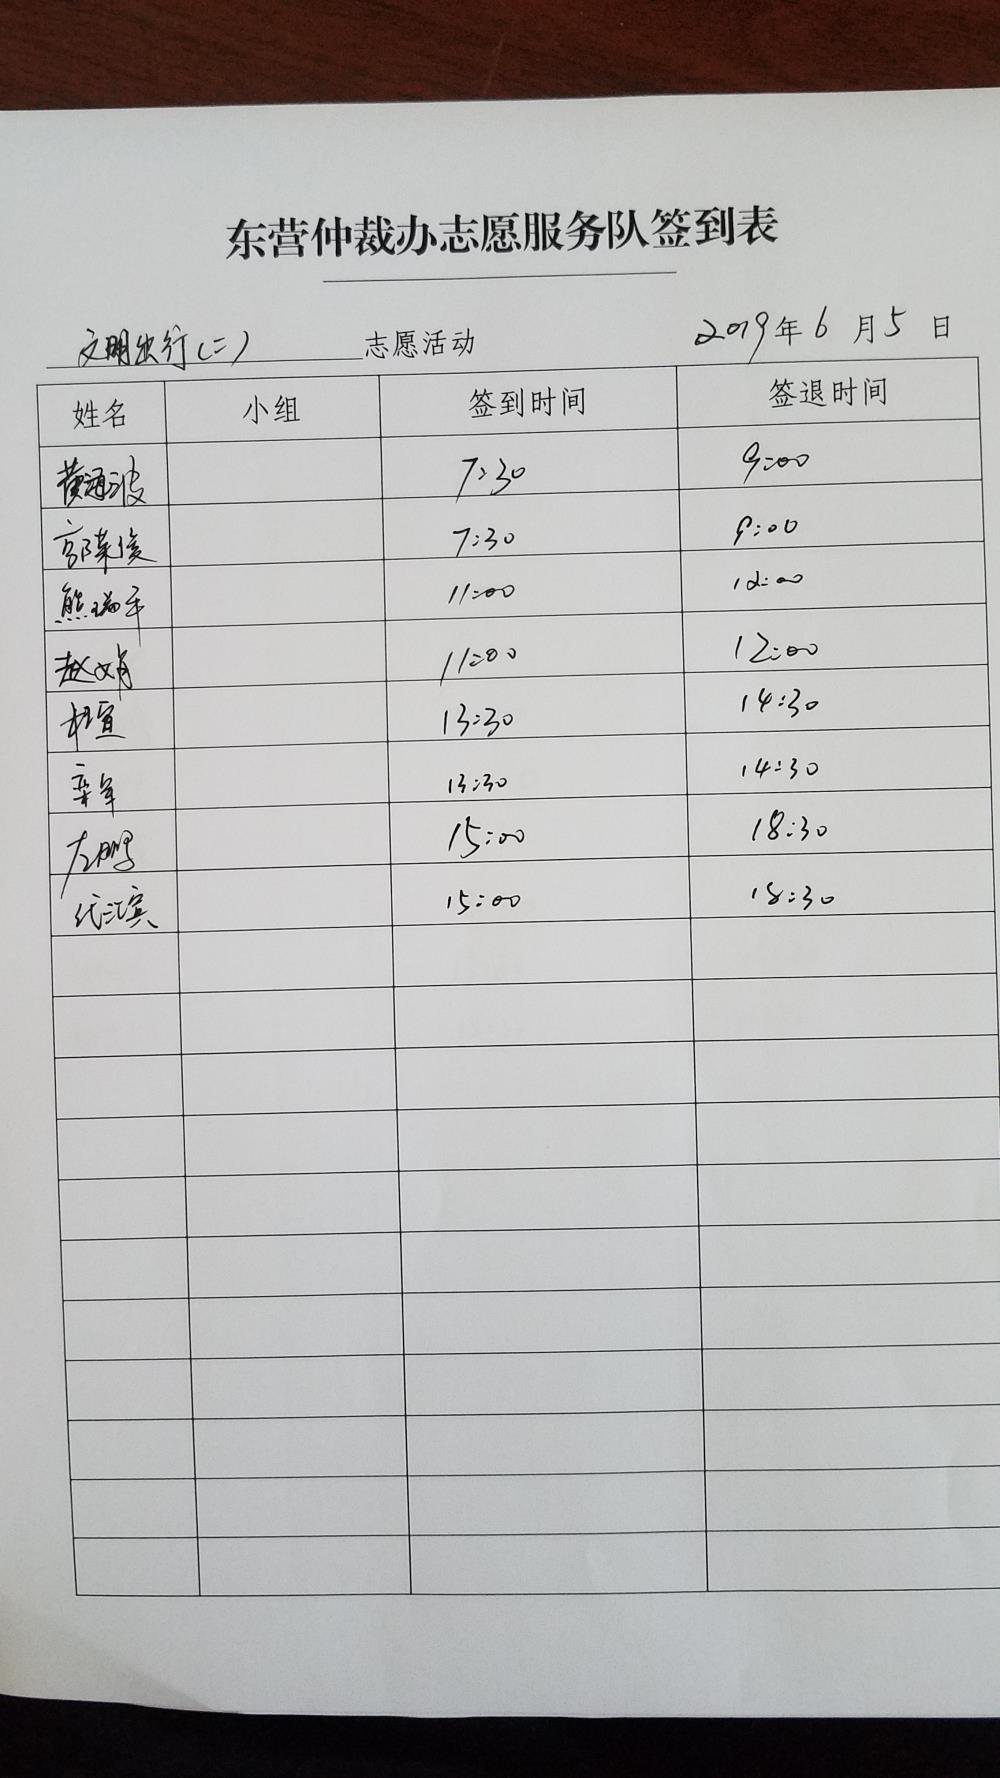 东营仲裁办志愿服务队签到表
文明出行(二) 志愿活动 2019年6月5日
姓名 小组 签到时间 签退时间
黄海波 7:30 9:00
郭荣俊 7:30 9:00
熊瑞平 11:00 12:00
赵文娟 11:00 12:00
杜宣 13:30 14:30
辛军 13:30 14:30
左鹏 15:00 18:30
代江宾 15:00 18:30